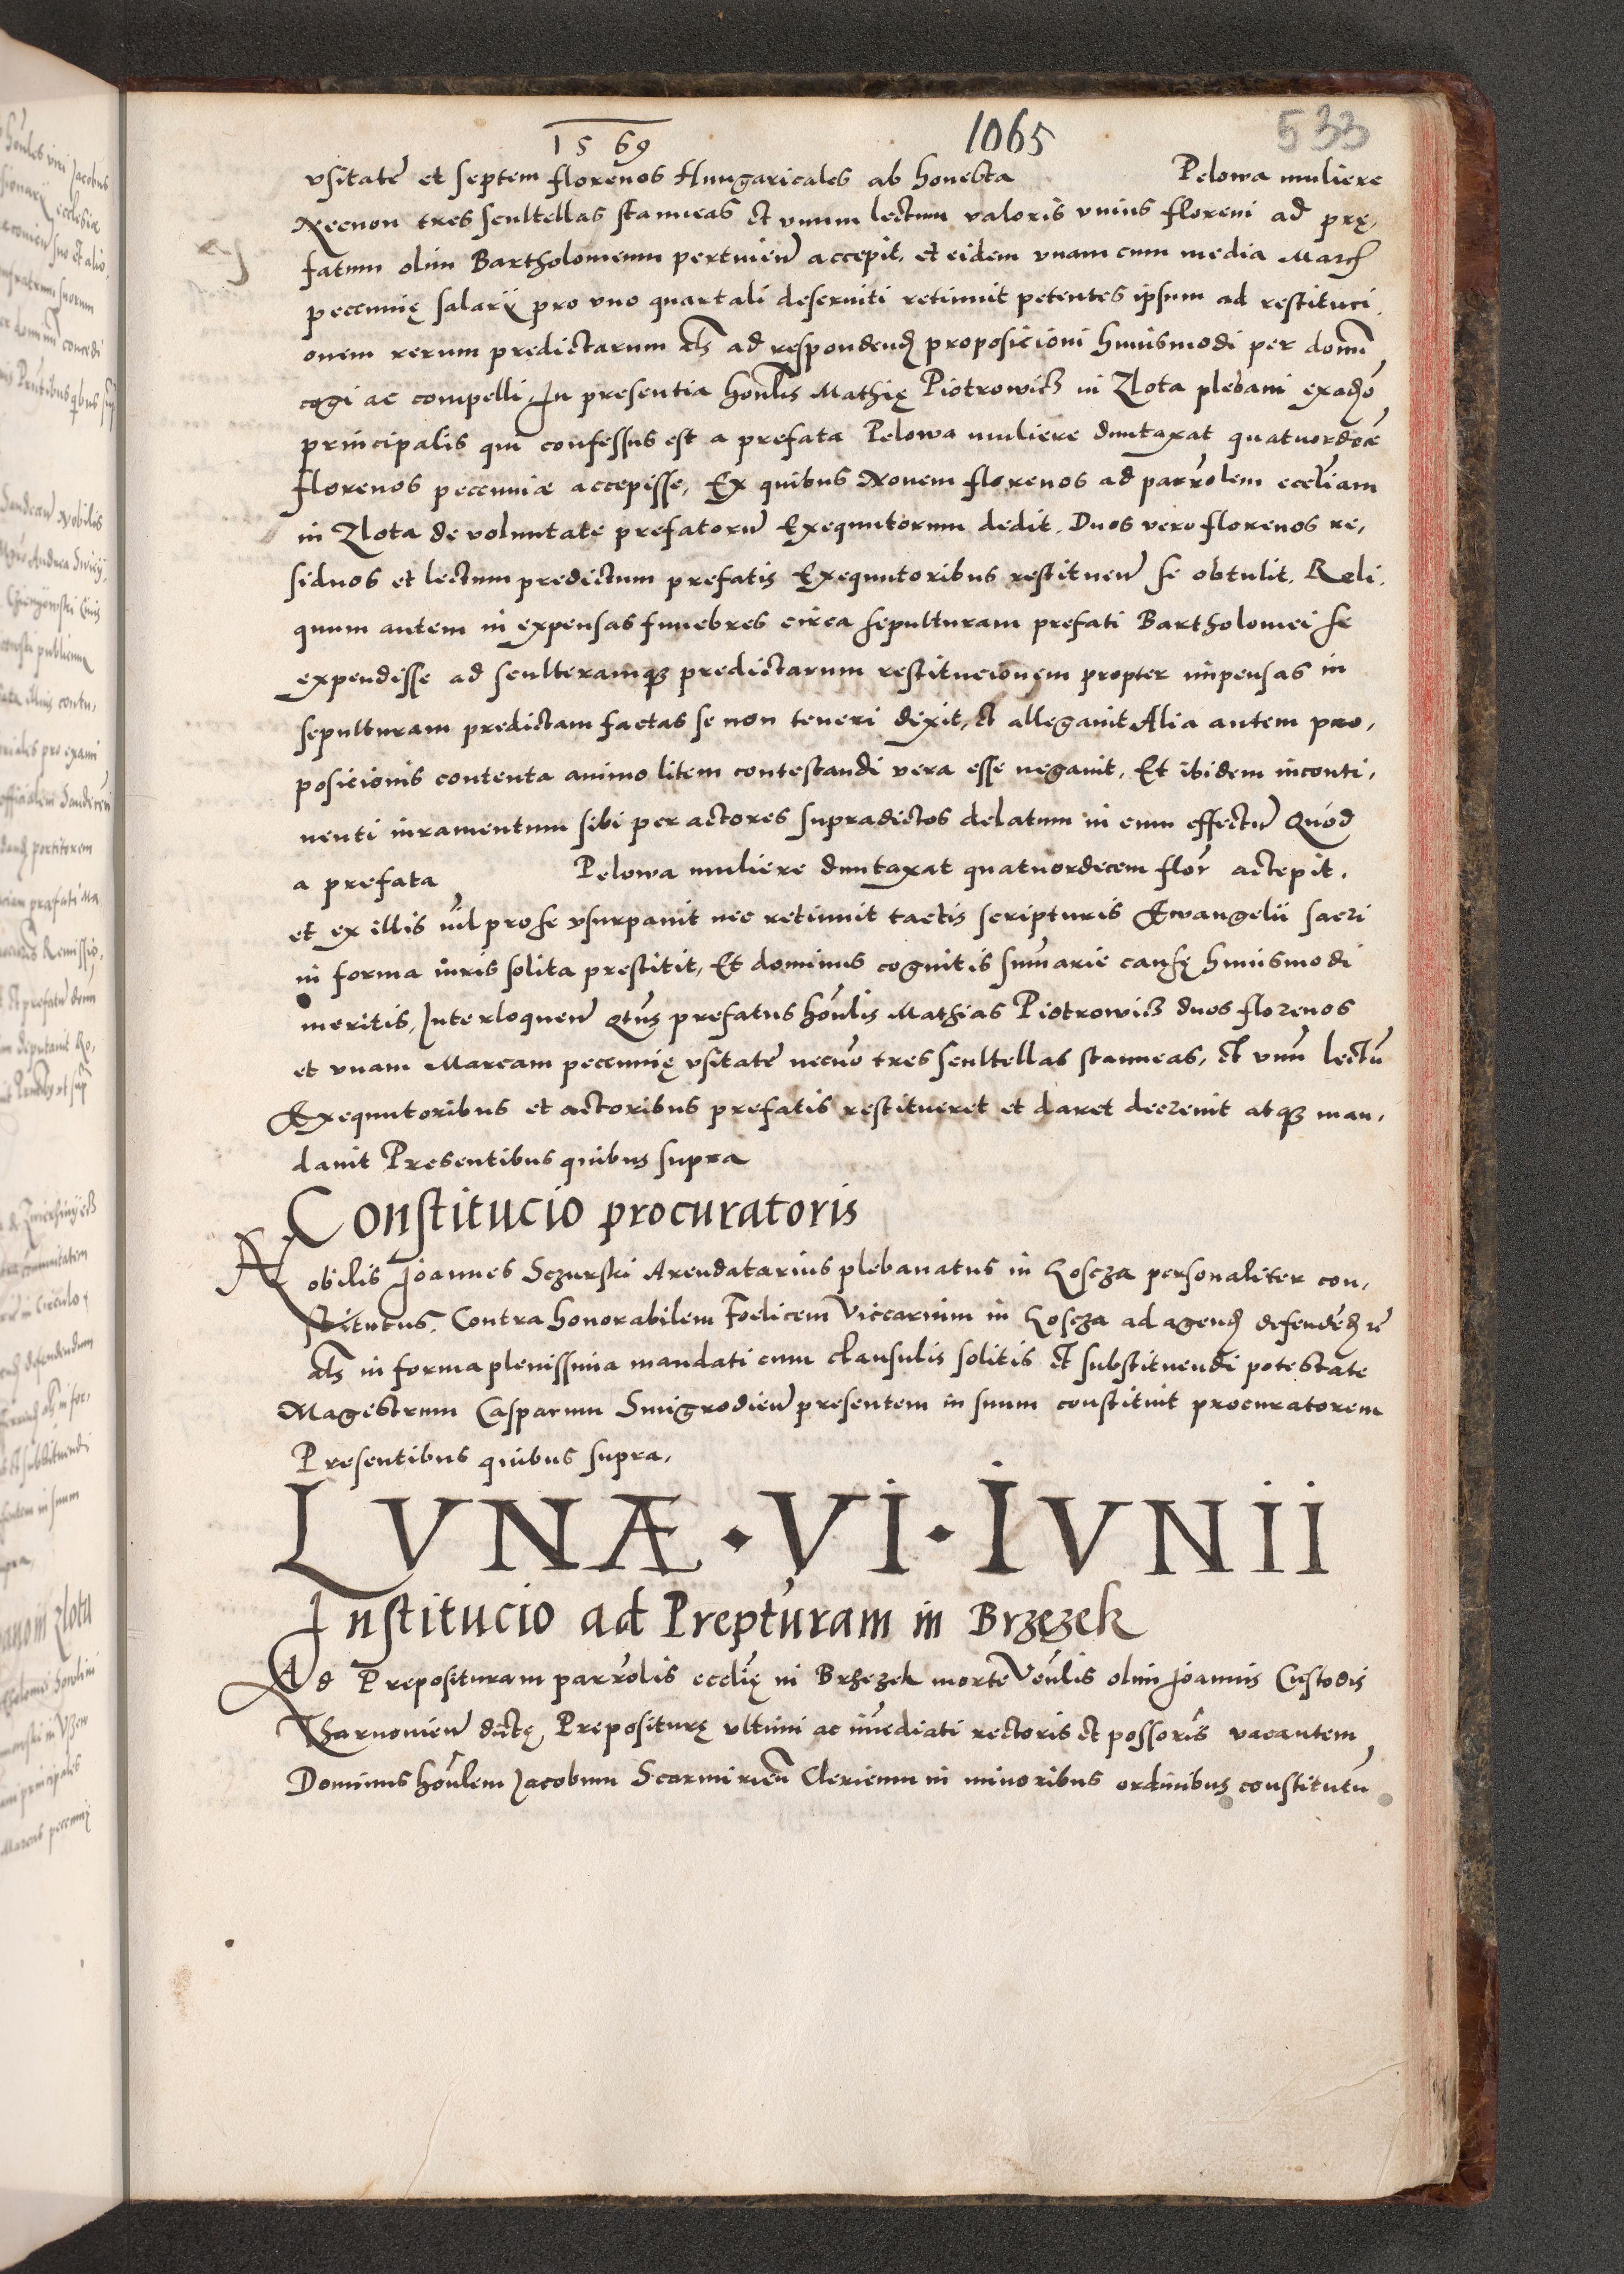 1569 1065 533
vsitate᷑ et septem florenos Hungaricales ab honesta Pelowa muliere
Necnon tres scultellas stanneas et vnum lectum valoris vnius floreni ad prę,
fatum olim Bartholomeum pertinen̄ accepit, et eidem vnam cum media March
pecunię salarij pro vno quartali deseruiti retinuit petentes ipsum ad restituci,
onem rerum predictarum als ad respondend proposicioni huiusmodi per dom̄
cogi ac compelli, In presentia hon̄lis Mathię Piotrowicz in Zlota plebani exad͛o
principalis qui confessus est a prefata Pelowa muliere duntaxat quatuordecē
florenos pecuniæ accepisse, Ex quibus Nonem florenos ad parr̄olem eccl̄iam
in Zlota de voluntate prefatorū Exequutorum dedit. Duos vero florenos re,
siduos et lectum predictum prefatis Exequutoribus restituen̄ se obtulit. Reli,
quum autem in expensas funebres circa sepulturam prefati Bartholomei se
expendisse ad sculteramqꝫ predictarum restitucionem propter impensas in
sepulturam predictam factas se non teneri dixit, et allegauit Alia autem pro,
posicionis contenta animo litem contestandi vera esse negauit. Et ibidem inconti,
nenti iuramentum sibi per actores supradictos delatum in eum effectū Quod
a prefata Pelowa muliere duntaxat quatuordecem flor̄ accepit.
et ex illis nil pro se vsurpauit nec retinuit tactis scripturis Ewangelii sacri
in forma iuris solita prestitit, Et dominus cognitis sum̄arie causę huiusmodi
meritis, Interloquen̄ Qtus prefatus hon̄lis Mathias Piotrowicz duos florenos
et vnam Marcam pecunię vsitate᷑ necnō tres scultellas stanneas, et vnū lectū
Exequutoribus et actoribus prefatis restitueret et daret decreuit atqꝫ man,
dauit Presentibus quibus supra
Constitucio procuratoris
Nobilis Joannes Sczurski Arendatarius plebanatus in Koscza personaliter con,
stitutus. Contra honorabilem Foelicem Viccarium in Koscza ad agend defendēd
als in forma plenissima mandati cum clausulis solitis et substituendi potestate
Magistrum Casparum Smigrodien̄ presentem in suum constituit procuratorem
Presentibus quibus supra,
LVNÆ · VI · IVNII
Institucio ad Prepturam in Brzęzek
Ad Preposituram parr̄olis eccl̄ię in Brzezek morte Ven̄lis olim Joannis Custodis
Tharnouien̄ dictę, Prepositurę vltimi ac im̄ediati rectoris et possoris vacantem
Dominus hon̄lem Jacobum Scarmirien̄ Clericum in minoribus ordinibus constitutū